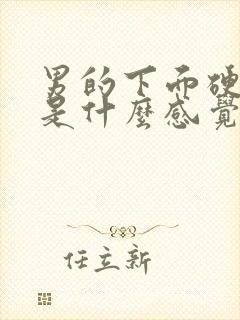 男的下面硬
是什麼感覺
任立新